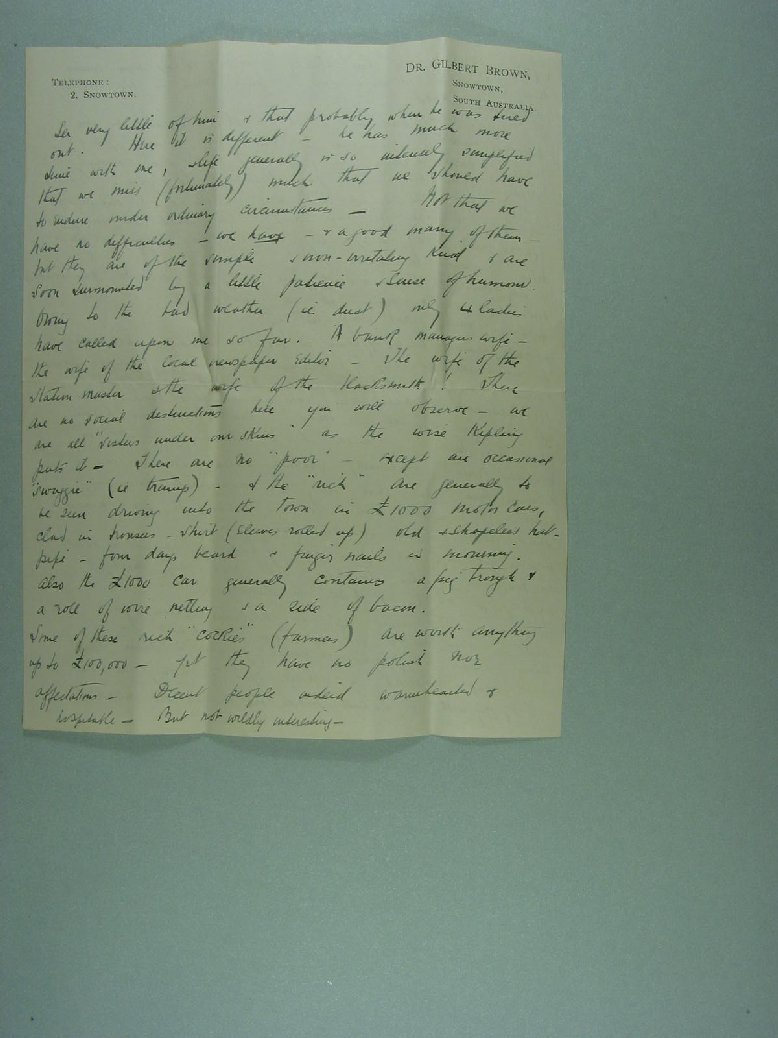 TELEPHONE:
2, SNOWTOWN.
DR. GILBERT BROWN,
SNOWTOWN,
SOUTH AUSTRALIA
see very little of him & that probably when he was tired
out. Here it is different - he has much more
time with me, & life generally is so intensely simplified
that we miss (fortunately) much that we should have
to endure under ordinary circumstances - Not that we
have no difficulties - we have - & a good many of them -
but they are of the simple & non-irritating kind & are
soon surmounted by a little patience & sense of humour.
Owing to the bad weather (ie dust) only 4 ladies
have called upon me so far. A bank managers wife -
the wife of the local newspaper Editor - the wife of the
Station master & the wife of the blacksmith! There
are no social distinctions here you will observe - we
are all "sisters under our skins" as the wise Kipling
puts it - There are no "poor" - except an occasional
"swaggie" (ie tramp) - & the "rich" are generally to
be seen driving into the town in £1000 motor cars,
clad in trousers - shirt (sleeves rolled up) old & shapeless hat -
pipe - four days beard & finger nails in mourning.
Also the £1000 car generally contains a pig trough &
a roll of wire netting & a side of bacon.
Some of these rich "cockies" (farmers) are worth anything
up to £100,000 - yet they have no polish nor
affectations - Decent people indeed warmhearted &
hospitable - But not wildly interesting -